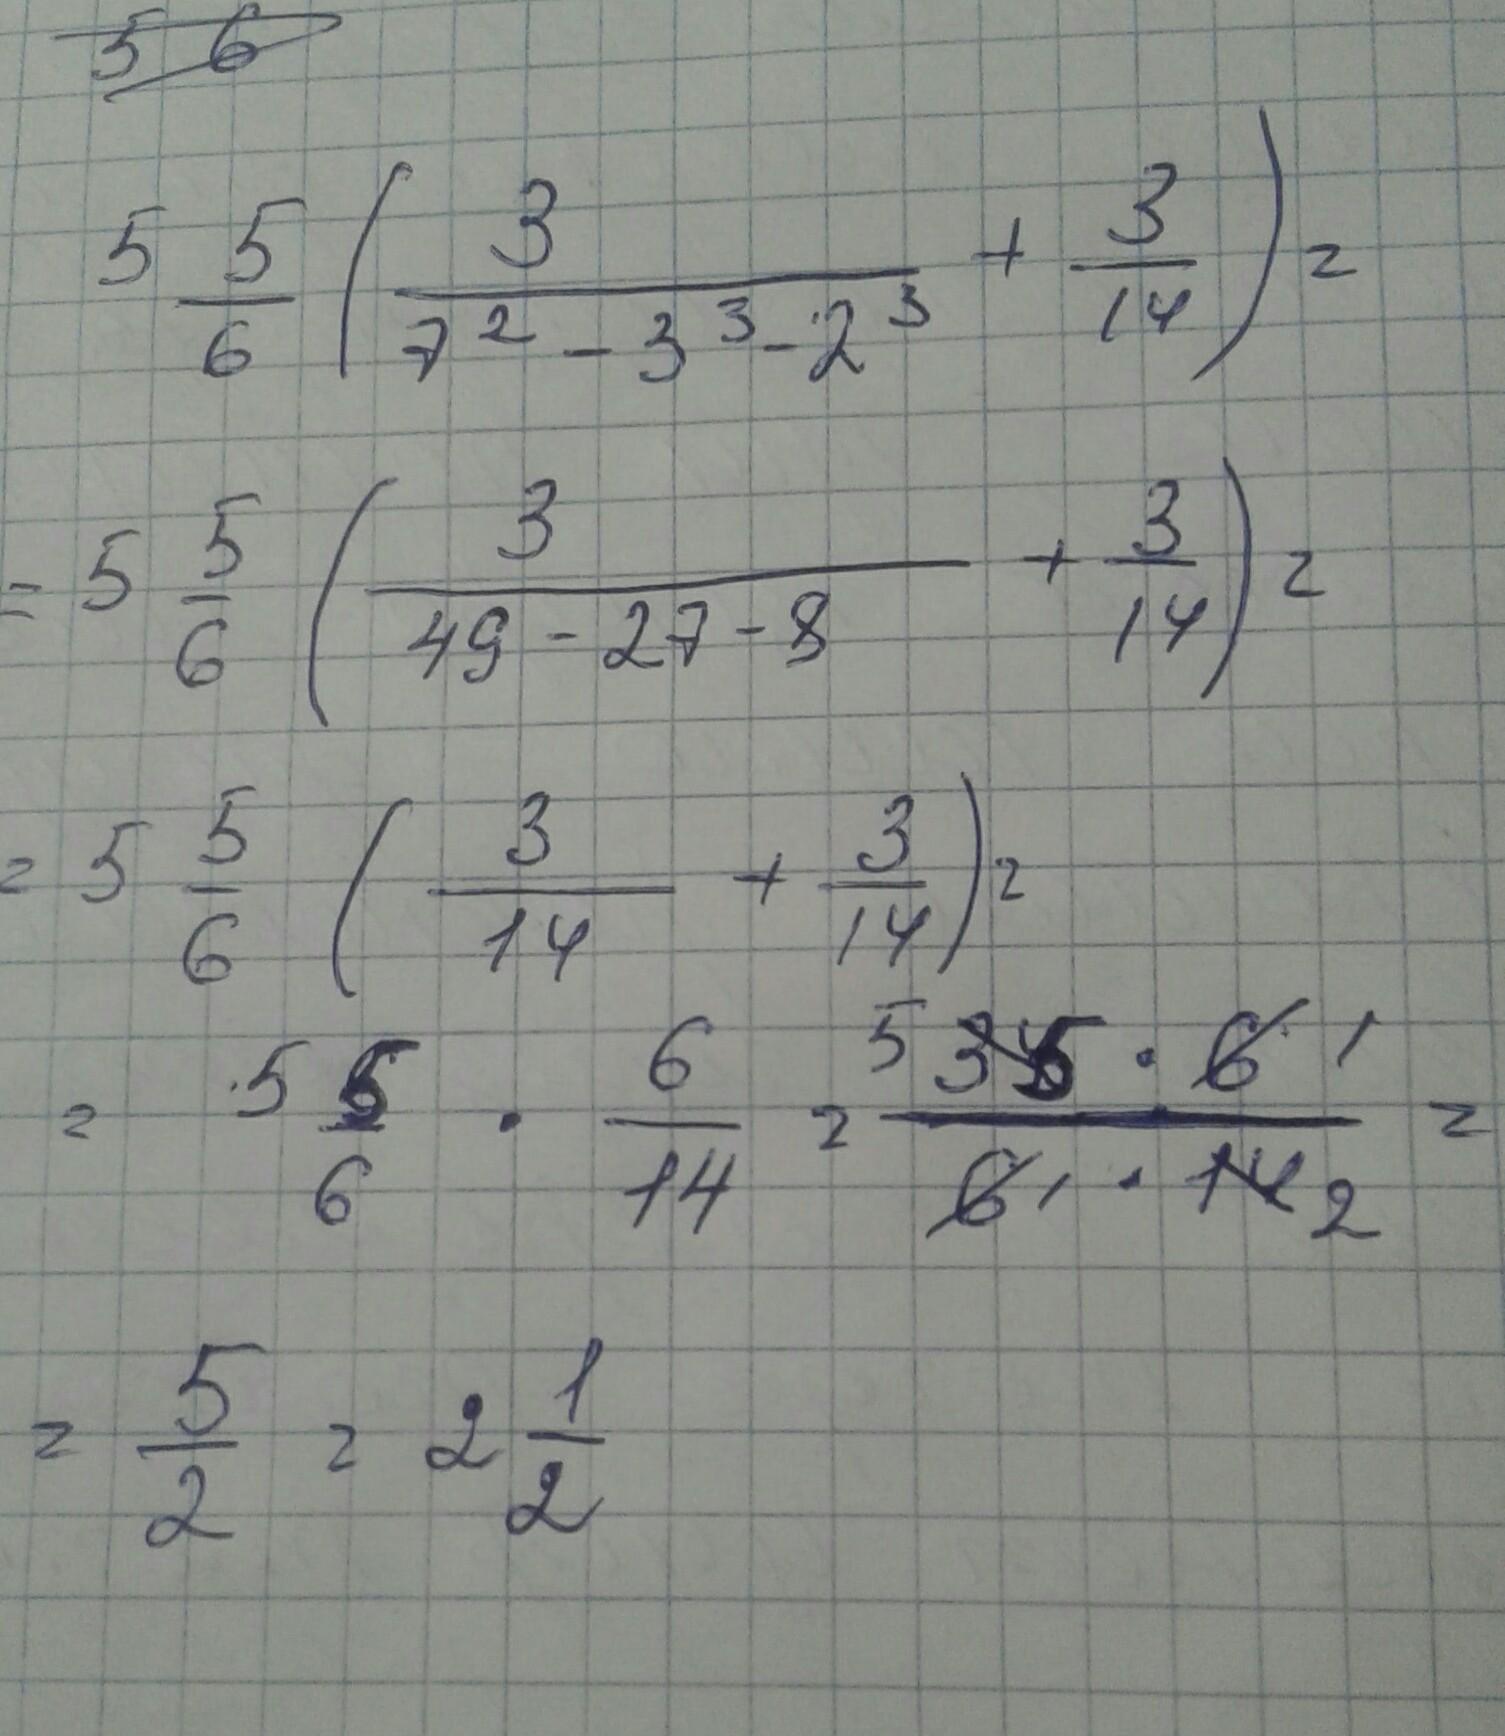 5 6
5 5/6 ( 3/(7² - 3³ - 2³) + 3/14 ) =
= 5 5/6 ( 3/(49 - 27 - 8) + 3/14 ) =
= 5 5/6 ( 3/14 + 3/14 ) =
= 5 5/6 · 6/14 = 5 35 · 6 1 / 6 1 · 14 2 =
= 5/2 = 2 1/2